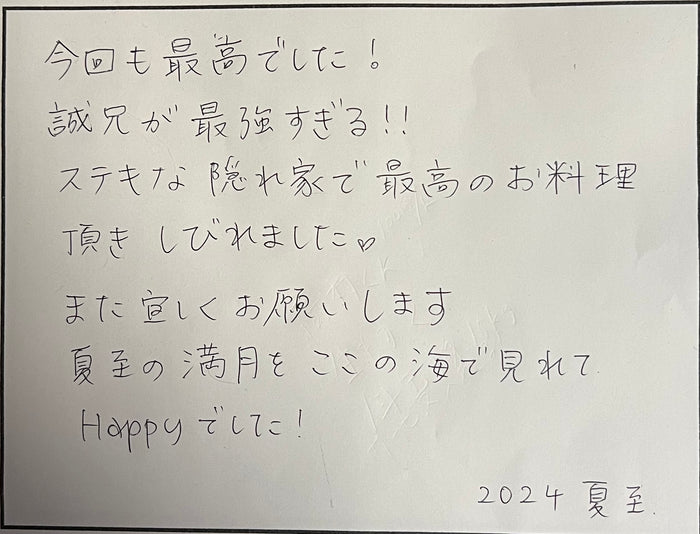 今回も最高でした!
誠兄が最強すぎる!!
ステキな隠れ家で最高のお料理
頂きしびれました♡
また宜しくお願いします
夏至の満月をここの海で見れて
Happyでした!
2024 夏至.